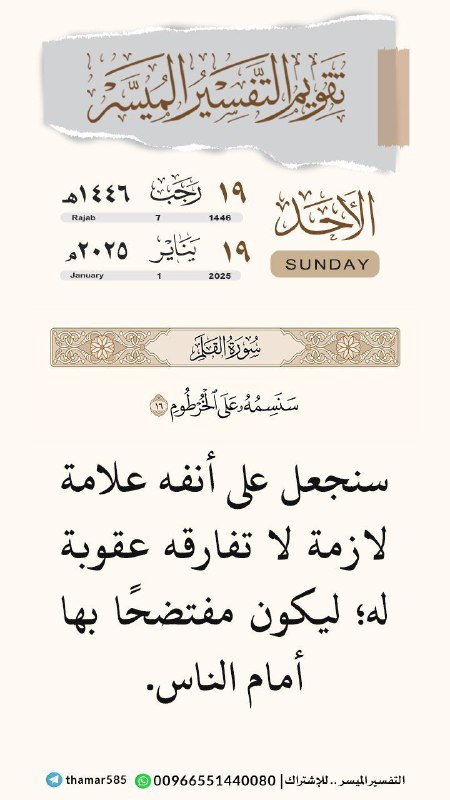 تقويم التفسير الميسر
الأحد
SUNDAY
١٩ رجب ١٤٤٦هـ
Rajab 7 1446
١٩ يناير ٢٠٢٥م
January 1 2025
سورة القلم
سَنَسِمُهُۥ عَلَى ٱلْخُرْطُومِ ١٦
سنجعل على أنفه علامة
لازمة لا تفارقه عقوبة
له؛ ليكون مفتضحًا بها
أمام الناس.
التفسير الميسر .. للإشتراك | 00966551440080 thamar585